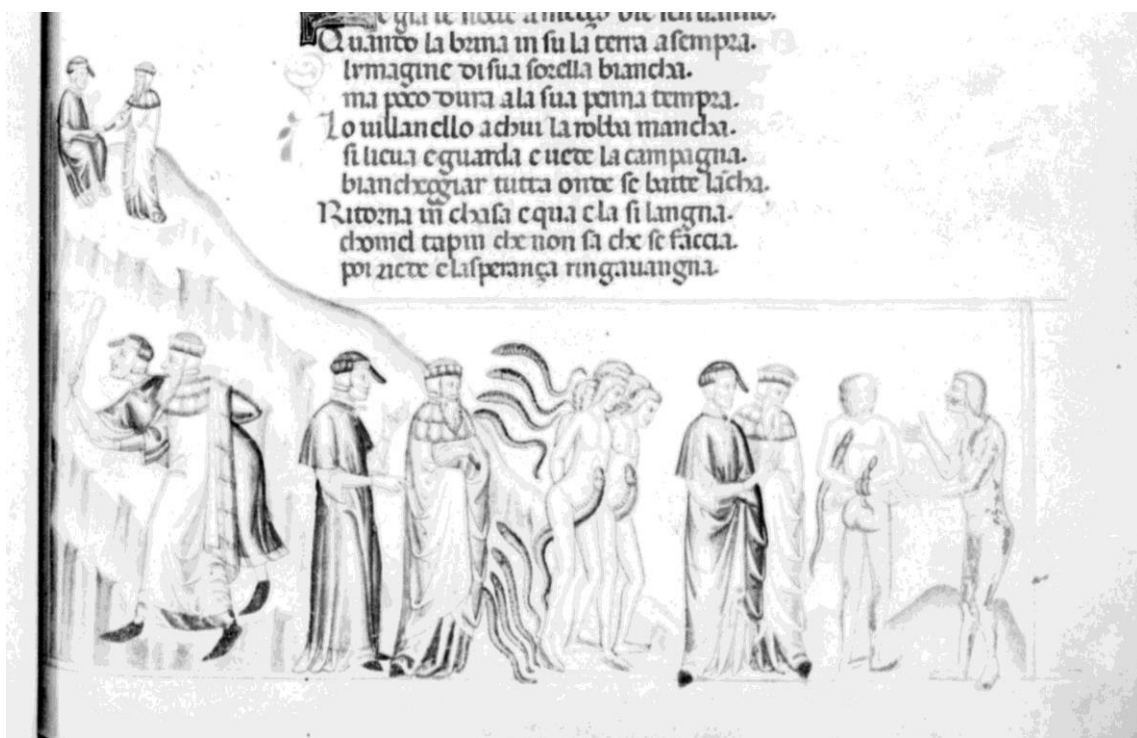 e gia le nocte a meçço die sen uanno.
Quanto la brina in su la terra asempra.
lymagine di sua sorella biancha.
ma poco dura ala sua penna tempra.
Lo uillanello achui la robba mancha.
si lieua e guarda e uede la campagna.
biancheggiar tutta onde se batte lācha.
Ritorna in chasa e qua e la si langna.
chomel tapin che non sa che se faccia.
poi riede e lasperança ringauangna.